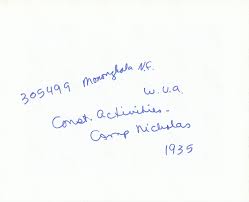 305499 Mononghala N.F.
W.Va.
Const. Activities -
Camp Nicholas
1935